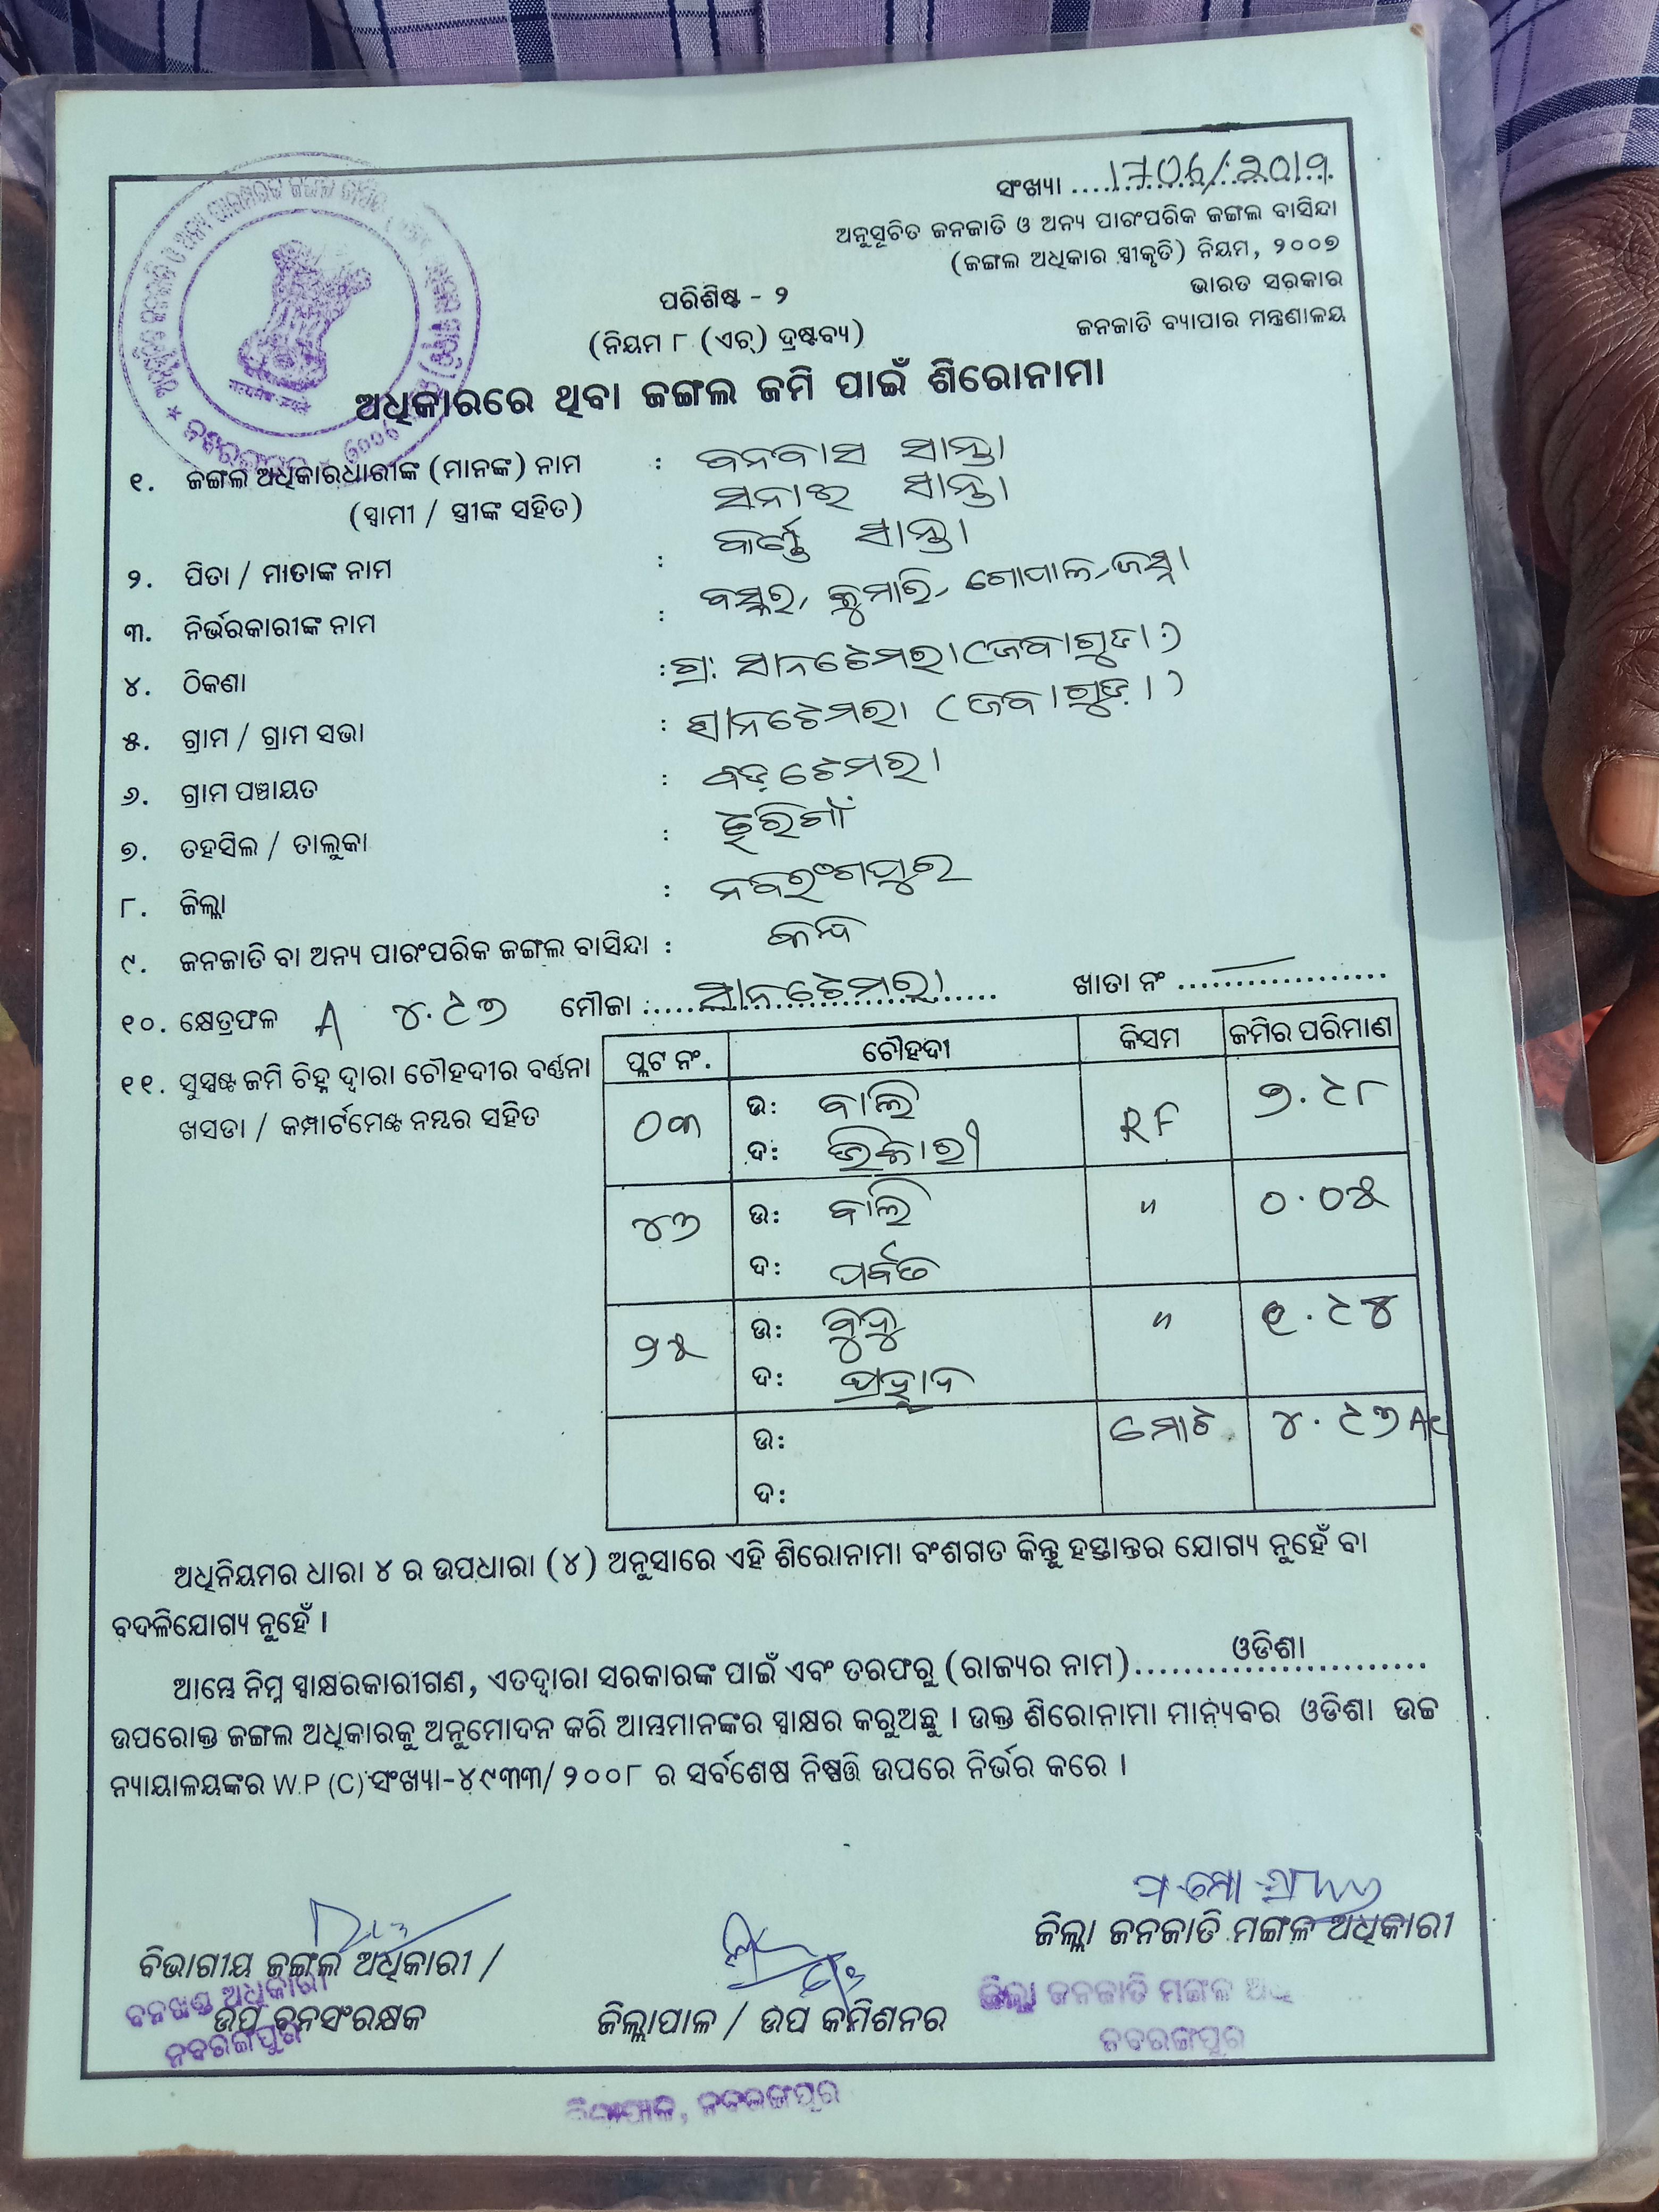 ସଂଖ୍ୟା
ଅନୁସୂଚିତ ଜନଜାତି ଓ ଅନ୍ୟ ପାରଂପରିକ ଜଙ୍ଗଲ ବାସିନ୍ଦା
(ଜଙ୍ଗଲ ଅଧିକାର ସ୍ୱୀକୃତି) ନିୟମ, ୨୦୦୭
ଭାରତ ସରକାର
ଜନଜାତି ବ୍ୟାପାର ମନ୍ତ୍ରଣାଳୟ
ପରିଶିଷ୍ଟ - ୨
(ନିୟମ ୮ (ଏଚ୍) ଦ୍ରଷ୍ଟବ୍ୟ)
ଅଧିକାରରେ ଥିବା ଜଙ୍ଗଲ ଜମି ପାଇଁ ଶିରୋନାମା
୧. ଜଙ୍ଗଲ ଅଧିକାରଧାରୀଙ୍କ (ମାନଙ୍କ) ନାମ : ବନବାସ ସାନ୍ତା
(ସ୍ୱାମୀ / ସ୍ତ୍ରୀଙ୍କ ସହିତ) ସନାଇ ସାନ୍ତା
୨. ପିତା / ମାତାଙ୍କ ନାମ : ସାନ୍ତା
୩. ନିର୍ଭରକାରୀଙ୍କ ନାମ : କୁମାରି, ଗୋପାଳ,
୪. ଠିକଣା : ଗ୍ରା: ସାନଟେମରା (ଜବାଗୁଡା)
୫. ଗ୍ରାମ / ଗ୍ରାମ ସଭା : ସାନଟେମରା (ଜବାଗୁଡ଼ା)
୬. ଗ୍ରାମ ପଞ୍ଚାୟତ : ବଡ଼ଟେମରା
୭. ତହସିଲ / ତାଲୁକା : ଝରିଗାଁ
୮. ଜିଲ୍ଲା : ନବରଂଗପୁର
୯. ଜନଜାତି ବା ଅନ୍ୟ ପାରଂପରିକ ଜଙ୍ଗଲ ବାସିନ୍ଦା :
୧୦. କ୍ଷେତ୍ରଫଳ A ୪.୯୭ ମୌଜା : ସାନଟେମରା ଖାତା ନଂ
୧୧. ସୁସ୍ପଷ୍ଟ ଜମି ଚିହ୍ନ ଦ୍ୱାରା ଚୌହଦୀର ବର୍ଣ୍ଣନା
ଖସଡା / କମ୍ପାର୍ଟମେଣ୍ଟ ନମ୍ବର ସହିତ
ପ୍ଲଟ ନଂ. ଚୌହଦୀ କିସମ ଜମିର ପରିମାଣ
୦୩ ଉ: ବାଲି RF ୭.୯୮
ଦ: ଭିକାରୀ
୪୭ ଉ: ବାଲି " ୦.୦୫
ଦ: ପର୍ବତ
୨୫ ଉ: ବୁଦୁ " ୧.୯୪
ଦ:
ଉ: ମୋଟ ୪.୯୭ Ac
ଦ:
ଅଧିନିୟମର ଧାରା ୪ ର ଉପଧାରା (୪) ଅନୁସାରେ ଏହି ଶିରୋନାମା ବଂଶଗତ କିନ୍ତୁ ହସ୍ତାନ୍ତର ଯୋଗ୍ୟ ନୁହେଁ ବା
ବଦଳିଯୋଗ୍ୟ ନୁହେଁ ।
ଆମ୍ଭେ ନିମ୍ନ ସ୍ୱାକ୍ଷରକାରୀଗଣ, ଏତଦ୍ଦ୍ୱାରା ସରକାରଙ୍କ ପାଇଁ ଏବଂ ତରଫରୁ (ରାଜ୍ୟର ନାମ) ଓଡିଶା
ଉପରୋକ୍ତ ଜଙ୍ଗଲ ଅଧିକାରକୁ ଅନୁମୋଦନ କରି ଆମ୍ଭମାନଙ୍କର ସ୍ୱାକ୍ଷର କରୁଅଛୁ । ଉକ୍ତ ଶିରୋନାମା ମାନ୍ୟବର ଓଡିଶା ଉଚ୍ଚ
ନ୍ୟାୟାଳୟଙ୍କର W.P (C) ସଂଖ୍ୟା-୪୯୩୩/୨୦୦୮ ର ସର୍ବଶେଷ ନିଷ୍ପତ୍ତି ଉପରେ ନିର୍ଭର କରେ ।
ଜିଲ୍ଲା ଜନଜାତି ମଙ୍ଗଳ ଅଧିକାରୀ
ବିଭାଗୀୟ ଜଙ୍ଗଲ ଅଧିକାରୀ /
ଉପ ବନସଂରକ୍ଷକ
ଜିଲ୍ଲାପାଳ / ଉପ କମିଶନର
ବନଖଣ୍ଡ ଅଧିକାରୀ
ନବରଙ୍ଗପୁର
ଜିଲ୍ଲା ଜନଜାତି ମଙ୍ଗଳ
ନବରଙ୍ଗପୁର
ଜିଲ୍ଲାପାଳ, ନବରଙ୍ଗପୁର